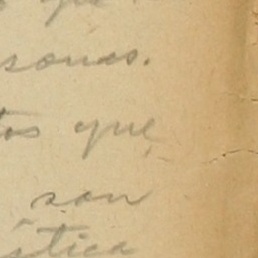 que
sones.
tos que
son
ística